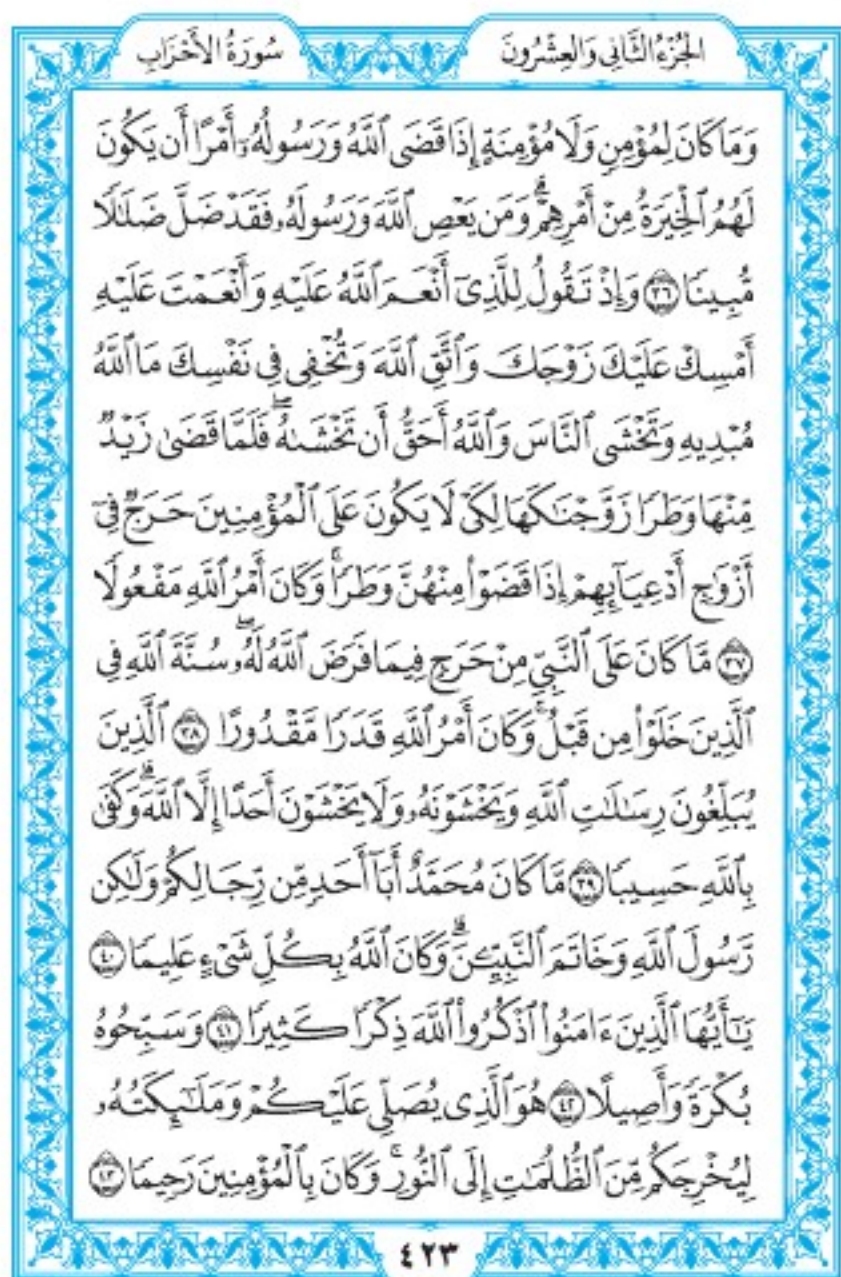 الجُزْءُ الثَّانِي وَالعِشْرُونَ
سُورَةُ الأَحْزَابِ
وَمَا كَانَ لِمُؤْمِنٍ وَلَا مُؤْمِنَةٍ إِذَا قَضَى ٱللَّهُ وَرَسُولُهُۥٓ أَمْرًا أَن يَكُونَ
لَهُمُ ٱلْخِيَرَةُ مِنْ أَمْرِهِمْۗ وَمَن يَعْصِ ٱللَّهَ وَرَسُولَهُۥ فَقَدْ ضَلَّ ضَلَٰلًا
مُّبِينًا ٣٦ وَإِذْ تَقُولُ لِلَّذِىٓ أَنْعَمَ ٱللَّهُ عَلَيْهِ وَأَنْعَمْتَ عَلَيْهِ
أَمْسِكْ عَلَيْكَ زَوْجَكَ وَٱتَّقِ ٱللَّهَ وَتُخْفِى فِى نَفْسِكَ مَا ٱللَّهُ
مُبْدِيهِ وَتَخْشَى ٱلنَّاسَ وَٱللَّهُ أَحَقُّ أَن تَخْشَىٰهُۖ فَلَمَّا قَضَىٰ زَيْدٌ
مِّنْهَا وَطَرًا زَوَّجْنَٰكَهَا لِكَىْ لَا يَكُونَ عَلَى ٱلْمُؤْمِنِينَ حَرَجٌ فِىٓ
أَزْوَٰجِ أَدْعِيَآئِهِمْ إِذَا قَضَوْا۟ مِنْهُنَّ وَطَرًاۚ وَكَانَ أَمْرُ ٱللَّهِ مَفْعُولًا
٣٧ مَّا كَانَ عَلَى ٱلنَّبِىِّ مِنْ حَرَجٍ فِيمَا فَرَضَ ٱللَّهُ لَهُۥۖ سُنَّةَ ٱللَّهِ فِى
ٱلَّذِينَ خَلَوْا۟ مِن قَبْلُۚ وَكَانَ أَمْرُ ٱللَّهِ قَدَرًا مَّقْدُورًا ٣٨ ٱلَّذِينَ
يُبَلِّغُونَ رِسَٰلَٰتِ ٱللَّهِ وَيَخْشَوْنَهُۥ وَلَا يَخْشَوْنَ أَحَدًا إِلَّا ٱللَّهَۗ وَكَفَىٰ
بِٱللَّهِ حَسِيبًا ٣٩ مَّا كَانَ مُحَمَّدٌ أَبَآ أَحَدٍ مِّن رِّجَالِكُمْ وَلَٰكِن
رَّسُولَ ٱللَّهِ وَخَاتَمَ ٱلنَّبِيِّـۧنَۗ وَكَانَ ٱللَّهُ بِكُلِّ شَىْءٍ عَلِيمًا ٤٠
يَٰٓأَيُّهَا ٱلَّذِينَ ءَامَنُوا۟ ٱذْكُرُوا۟ ٱللَّهَ ذِكْرًا كَثِيرًا ٤١ وَسَبِّحُوهُ
بُكْرَةً وَأَصِيلًا ٤٢ هُوَ ٱلَّذِى يُصَلِّى عَلَيْكُمْ وَمَلَٰٓئِكَتُهُۥ
لِيُخْرِجَكُم مِّنَ ٱلظُّلُمَٰتِ إِلَى ٱلنُّورِۚ وَكَانَ بِٱلْمُؤْمِنِينَ رَحِيمًا ٤٣
٤٢٣